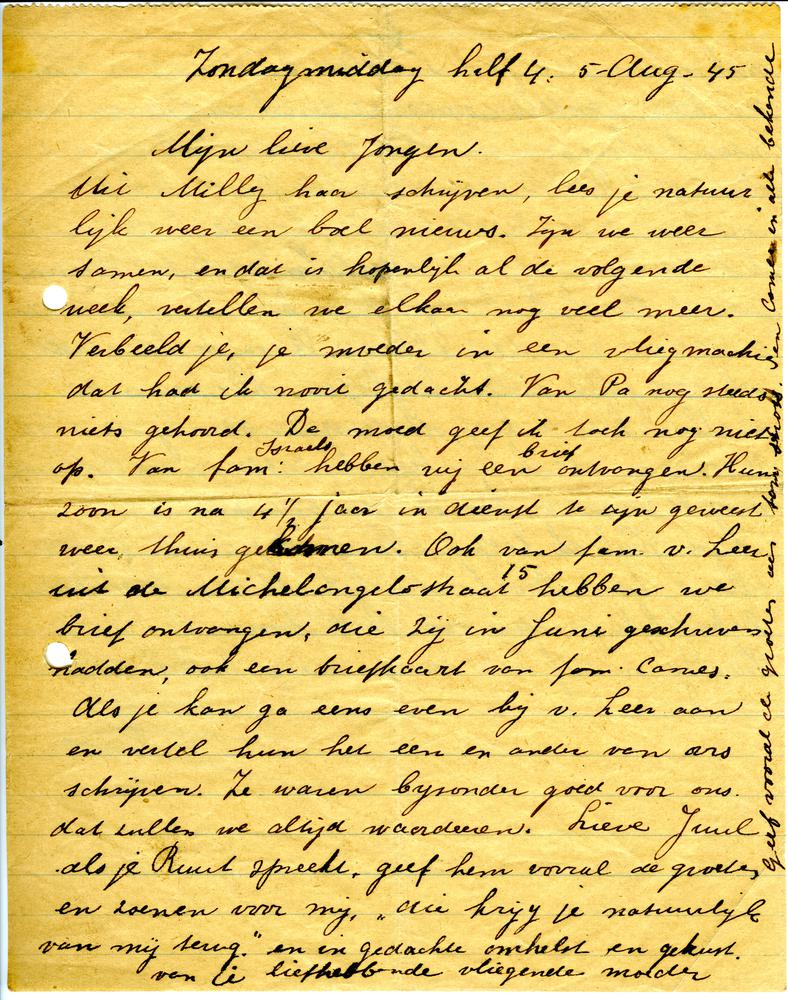 Zondagmiddag half 4. 5-Aug-45
Mijn lieve Jongen.
Uit Milly haar schrijven, lees je natuur
lijk weer een boel nieuws. Zijn we weer
samen, en dat is hopenlijk al de volgende
week, vertellen we elkaar nog veel meer.
Verbeeld je, je moeder in een vliegmachie
dat had ik nooit gedacht. Van Pa nog steeds
niets gehoord. De moed geef ik toch nog niet
op. Van fam: Israels hebben wij een brief ontvangen. Hun
zoon is na 4½ jaar in dienst te zijn geweest
weer thuis gekomen. Ook van fam. v. Leer
uit de Michelangelostraat 15 hebben we
brief ontvangen, die zij in Juni geschreven
hadden, ook een briefkaart van fam. Cames.
Als je kan ga eens even bij v. Leer aan
en vertel hun het een en ander van ons
schrijven. Ze waren bysonder goed voor ons.
dat zullen we altijd waarderen. Lieve Juul
als je Ruut spreekt, geef hem vooral de groeten
en zoenen voor mij, „die krijg je natuurlijk
van mij terug." en in gedachte omhelst en gekust.
van je liefhebbende vliegende moeder
Geef vooral de groeten aan fam en alle bekende